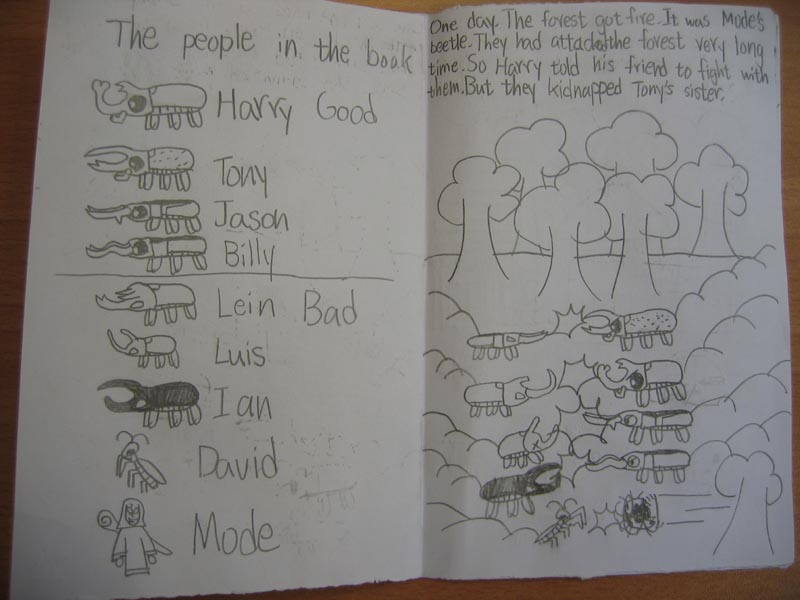 The people in the book
Harry Good
Tony
Jason
Billy
Lein Bad
Luis
Ian
David
Mode
One day. The forest got fire. It was Mode's
beetle. They had attacked the forest very long
time. So Harry told his friend to fight with
them. But they kidnapped Tony's sister.